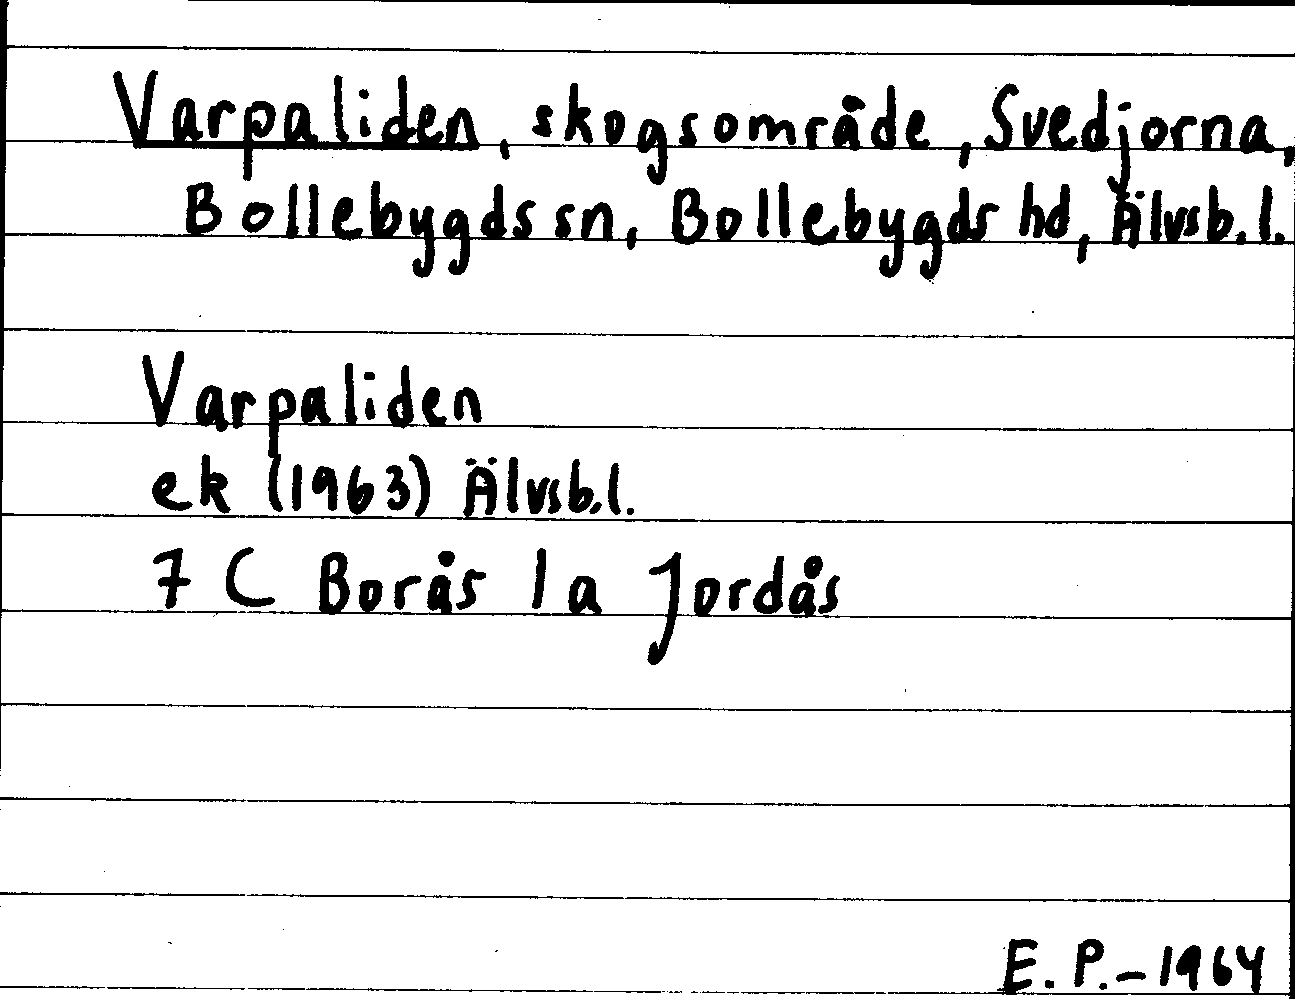 Varpaliden, skogsområde, Svedjorna,
Bollebygds sn, Bollebygds hd, Älvsb.l.
Varpaliden
ek (1963) Älvsb.l.
7 C Borås 1a Jordås
E.P.-1964